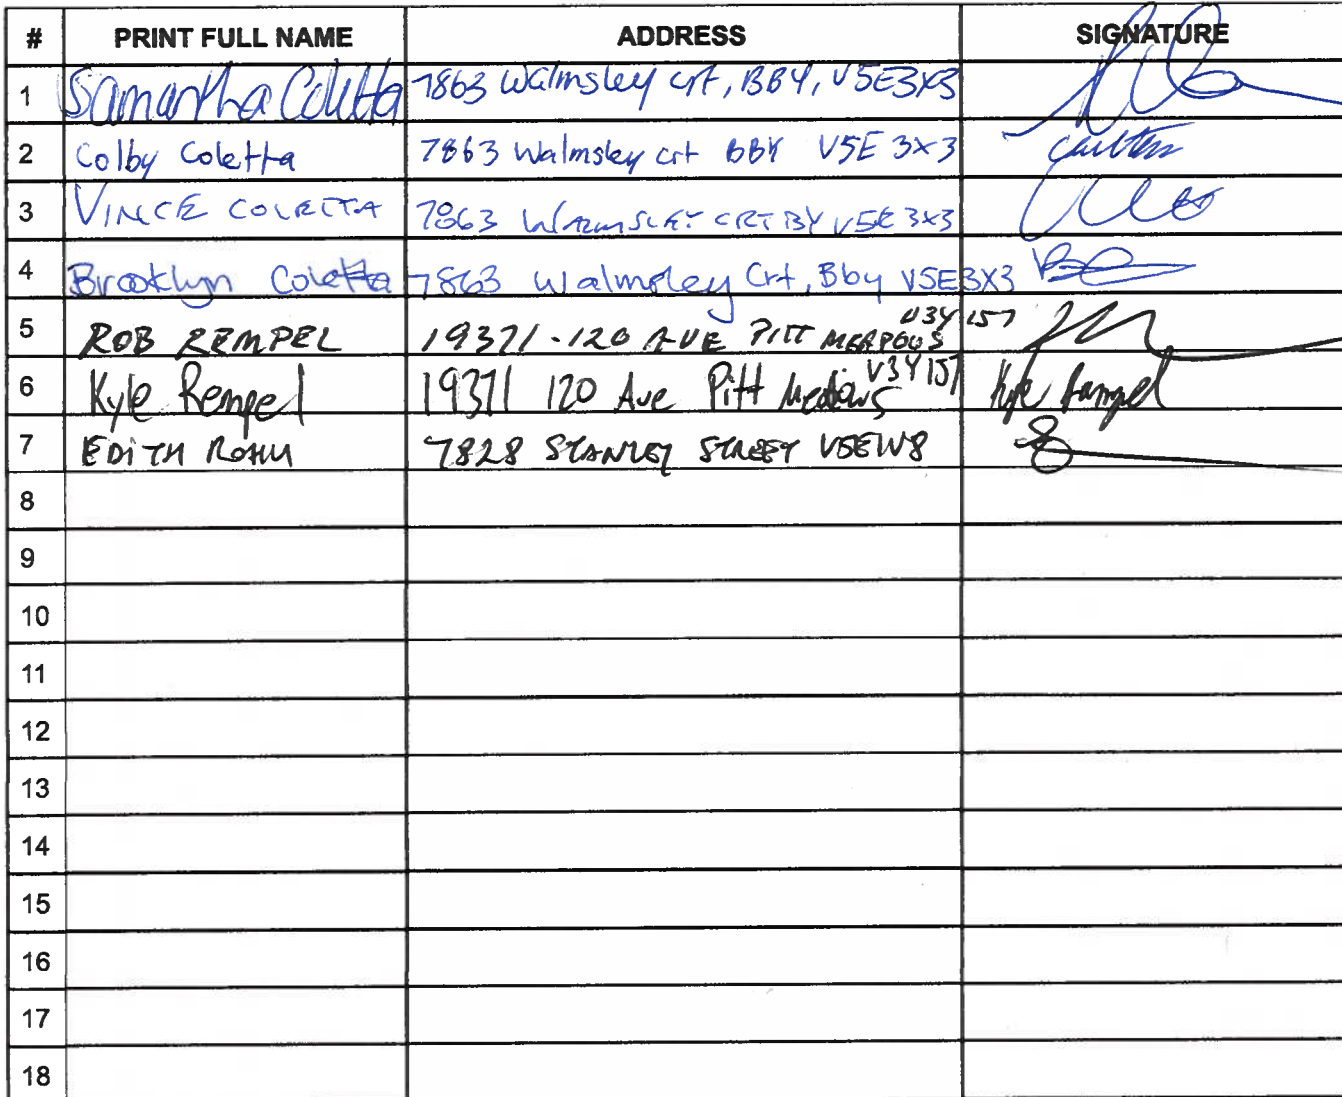 # PRINT FULL NAME ADDRESS SIGNATURE
1 Samantha Coletta 7863 Walmsley crt, BBY, V5E3X3
2 Colby Coletta 7863 Walmsley crt BBY V5E 3x3
3 VINCE COLETTA 7863 WALMSLEY CRT BY V5E 3x3
4 Brooklyn Coletta 7863 Walmsley Crt, Bby V5E3X3
5 ROB REMPEL 19371-120 AVE PITT MEADOWS V3Y 1S7
6 Kyle Rempel 19371 120 Ave Pitt Meadows V3Y 1S7 Kyle Rempel
7 EDITH 7828 STANLEY STREET
8
9
10
11
12
13
14
15
16
17
18